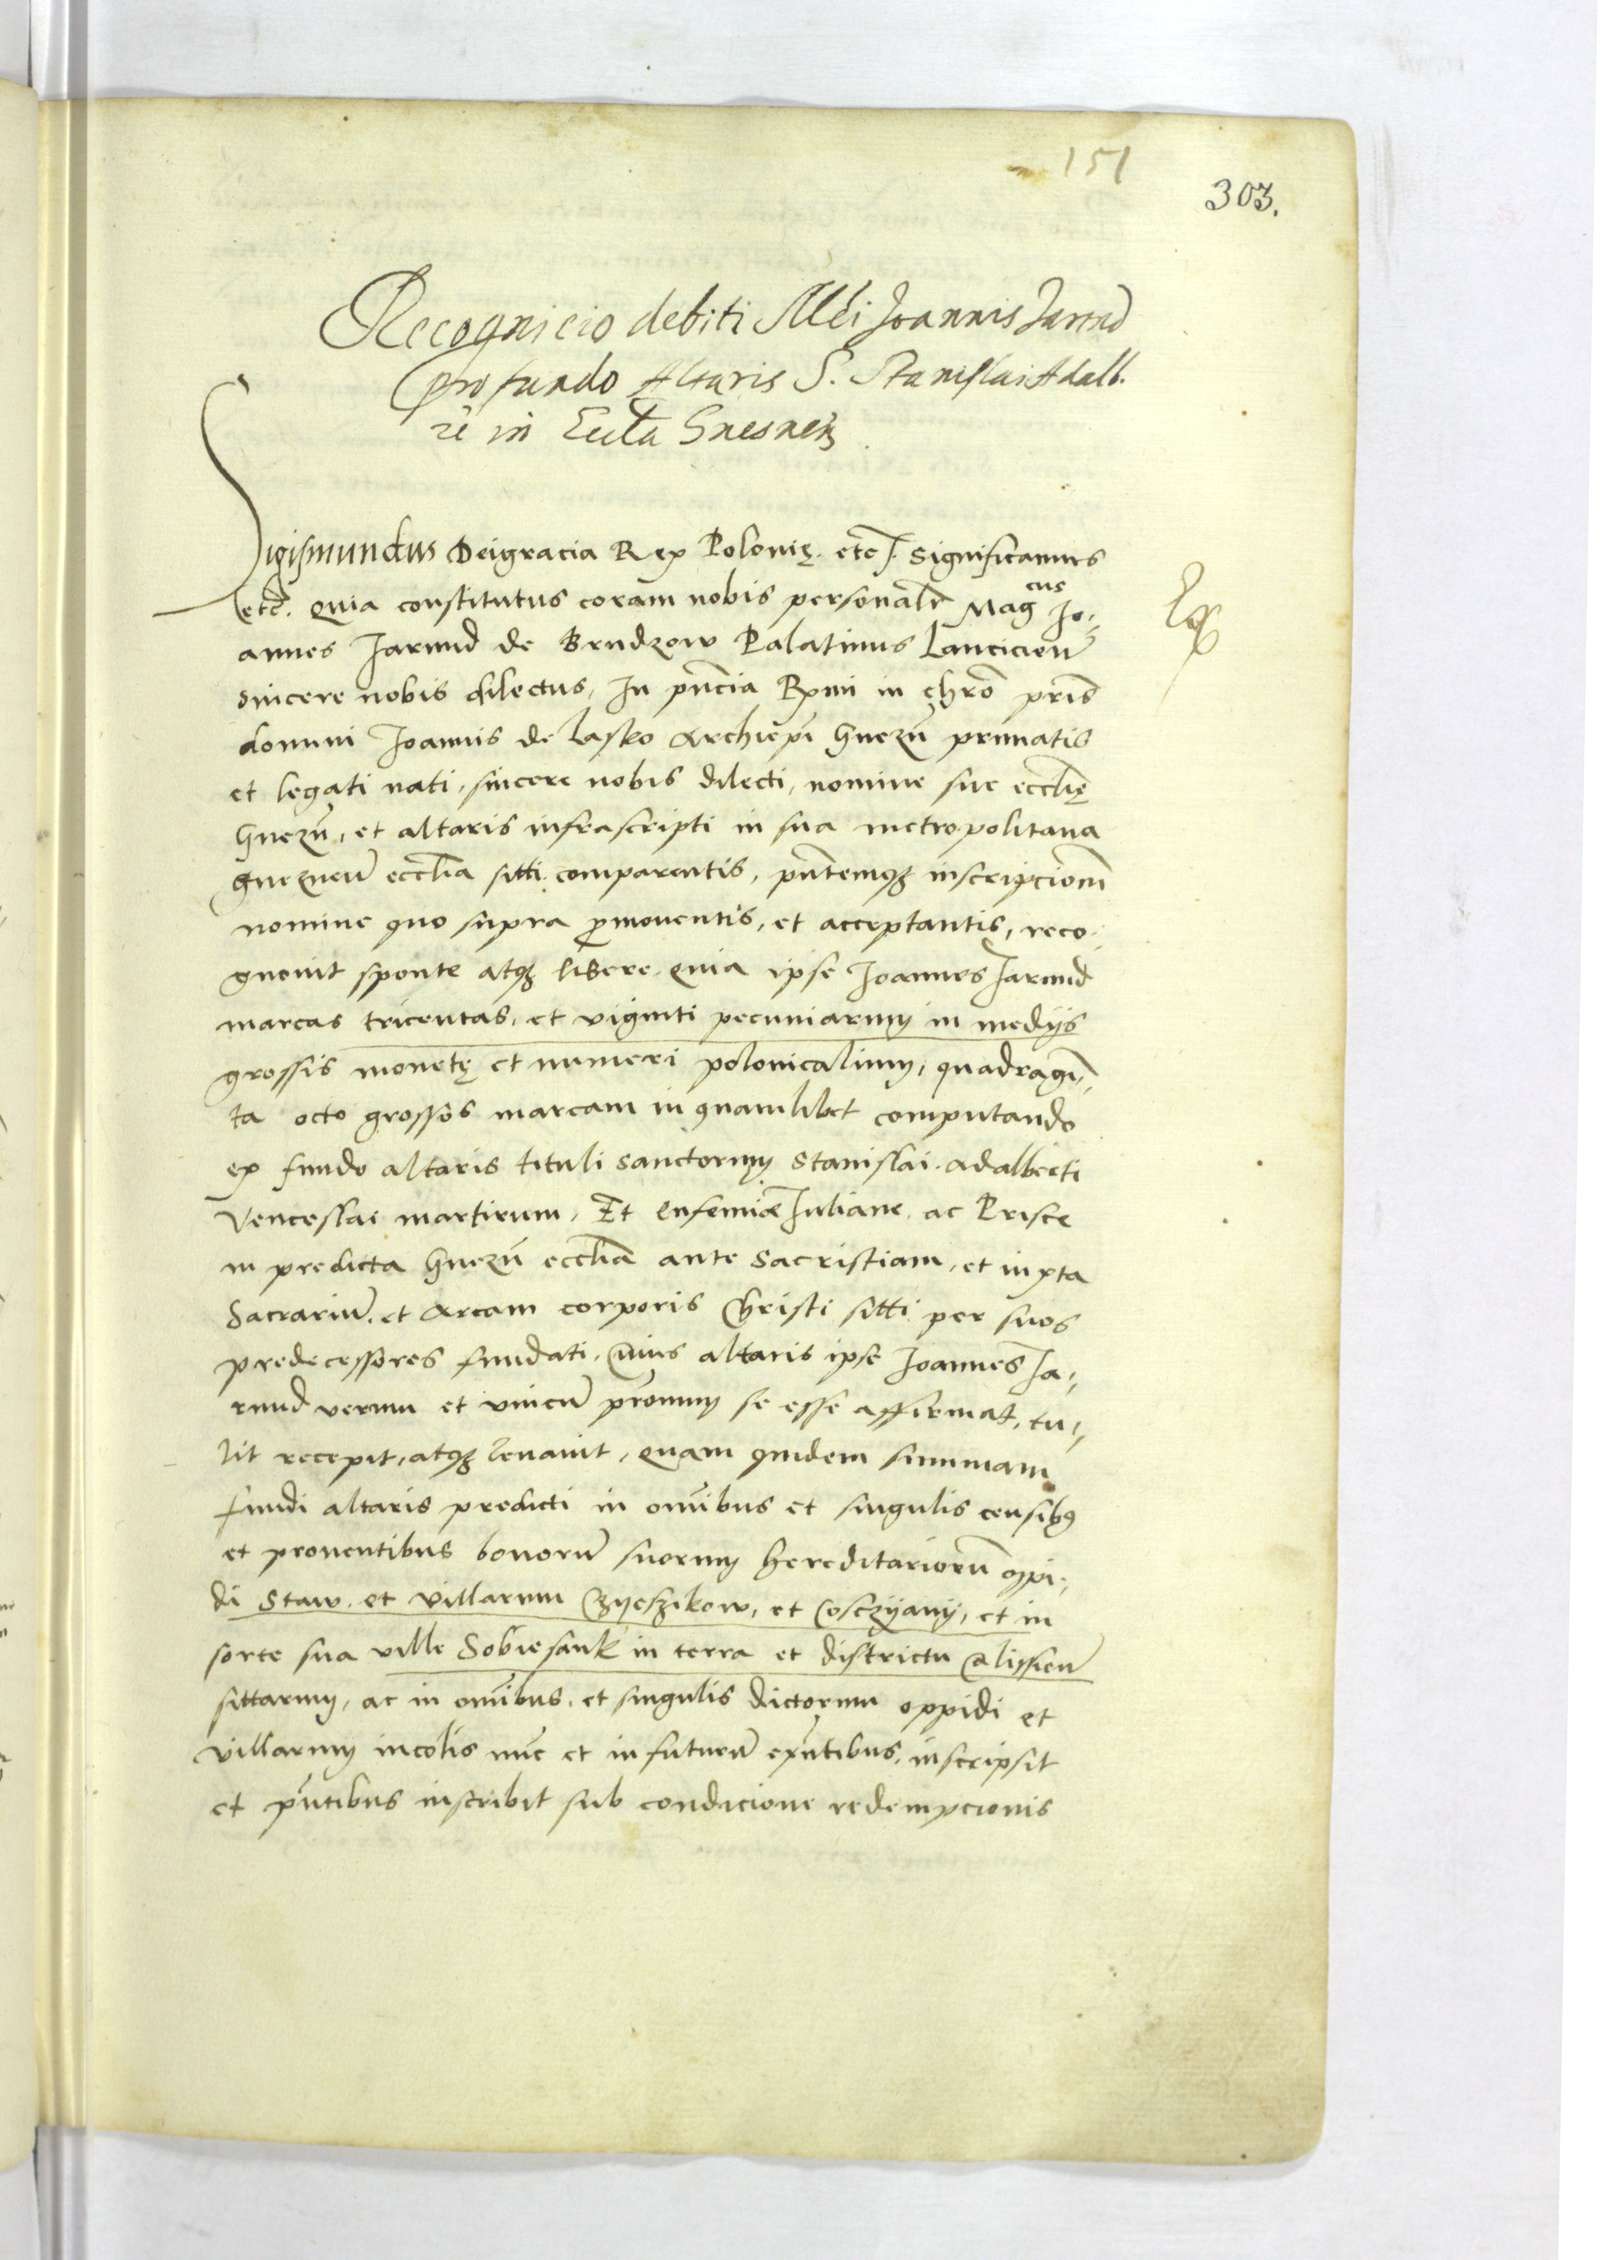 151
303.
Recognicio debiti Mci Joannis Jarand
pro fundo Altaris S. Stanislai Adalb.
in Eccla Gnesnen
Sigismundus Deigracia Rex Polonię. etc. Significamus
etc. Quia constitutus coram nobis personalr Magcus Jo-
annes Jarand de Brudzow Palatinus Lancicien
sincere nobis dilectus, In pñcia Rxmi in chro pris
domini Joannis de Lasko Archiepi Gnezñ primatis
et legati nati, sincere nobis dilecti, nomine sue ecclię
Gnezñ, et altaris infrascripti in sua metropolitana
gneznen ecclia sitti comparentis, pñtemqz inscripcionem
nomine quo supra pmouentis, et acceptantis, reco-
gnouit sponte atqz libere. Quia ipse Joannes Jarand
marcas tricentas, et viginti pecuniarum in medijs
grossis monetę et numeri polonicalium, quadragin-
ta octo grossos marcam in quamlibet computando
ex fundo altaris tituli sanctorum Stanislai. Adalberti
Venceslai martirum, Et Eufemiæ Juliane. ac Prisce
in predicta Gnezñ ecclia ante Sacristiam, et iuxta
Sacrarium. et Arcam corporis Christi sitti per suos
predecessores fundati. Cuius altaris ipse Joannes Ja-
rand verum et vnicum pronum se esse affirmat, tu-
lit recepit, atqz leuauit, Quam quidem summam
fundi altaris predicti in omibus et singulis censibus
et prouentibus bonorum suorum hereditariorum oppi-
di Staw. et villarum Czyeszikow, et Cosczyany, et in
sorte sua ville Sobiesank in terra et districtu Calissien
sittarum, ac in omibus. et singulis dictorum oppidi et
villarum incolis nunc et in futurum exñtibus, inscripsit
et pñtibus inscribit sub condicione redempcionis